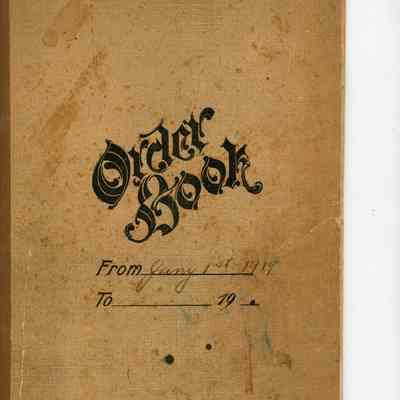 Order
Book
From Juny 1st 1919
To 19